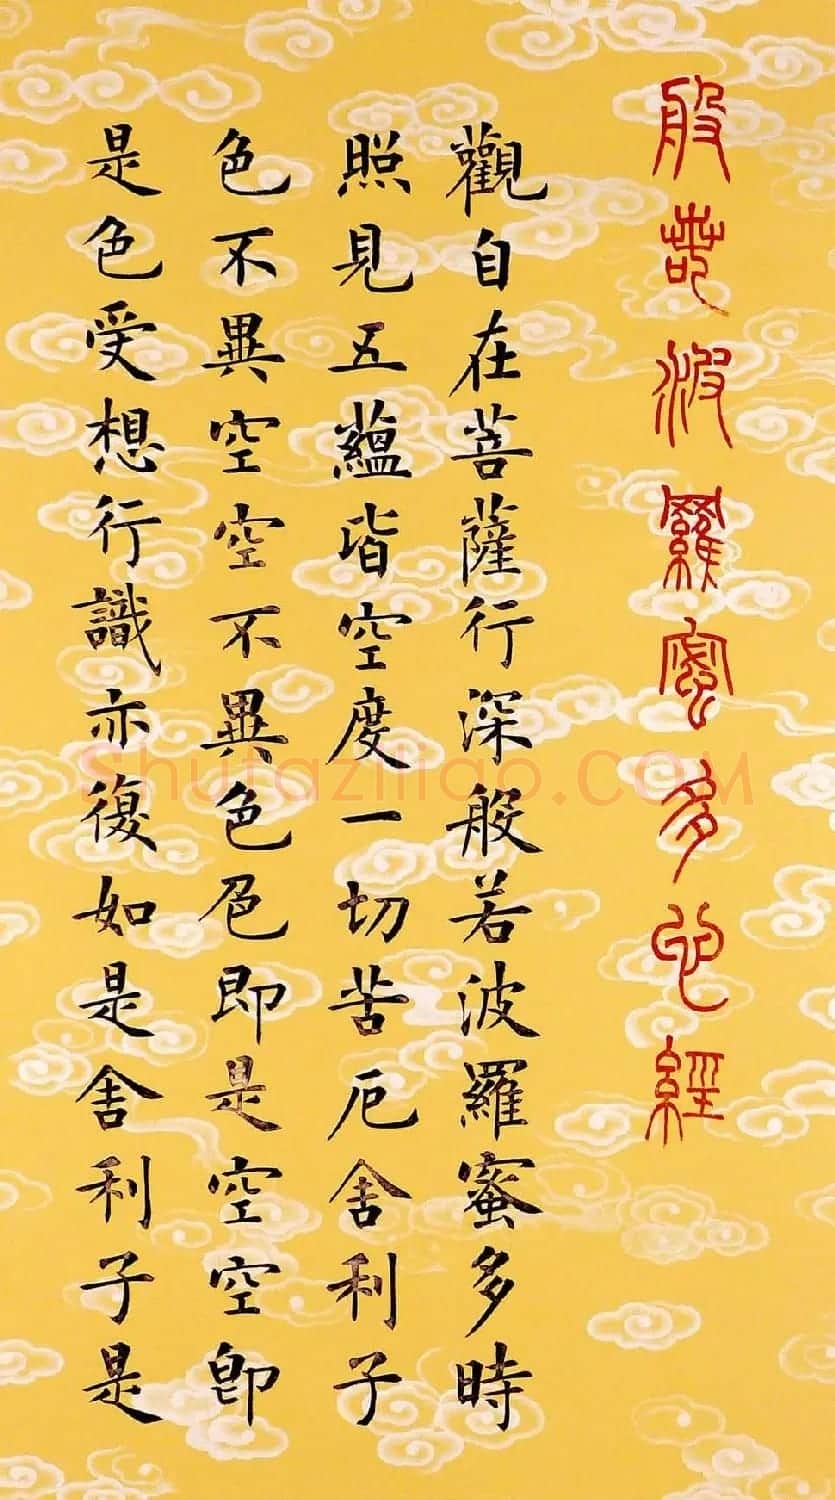 般若波羅蜜多心經
觀自在菩薩行深般若波羅蜜多時
照見五蘊皆空度一切苦厄舍利子
色不異空空不異色色即是空空即
是色受想行識亦復如是舍利子是
Shufaziliao.COM